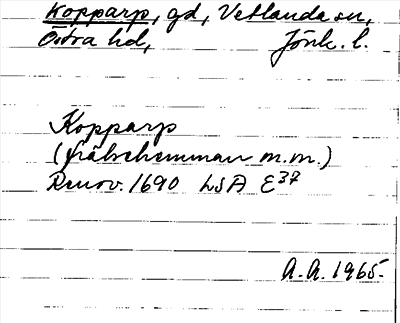 Kopparp, gd, Vetlanda sn,
Östra hd, Jönk. l.
Kopparp
(frälsehemman m.m.)
Renov. 1690 LSA E37
A.A. 1965.